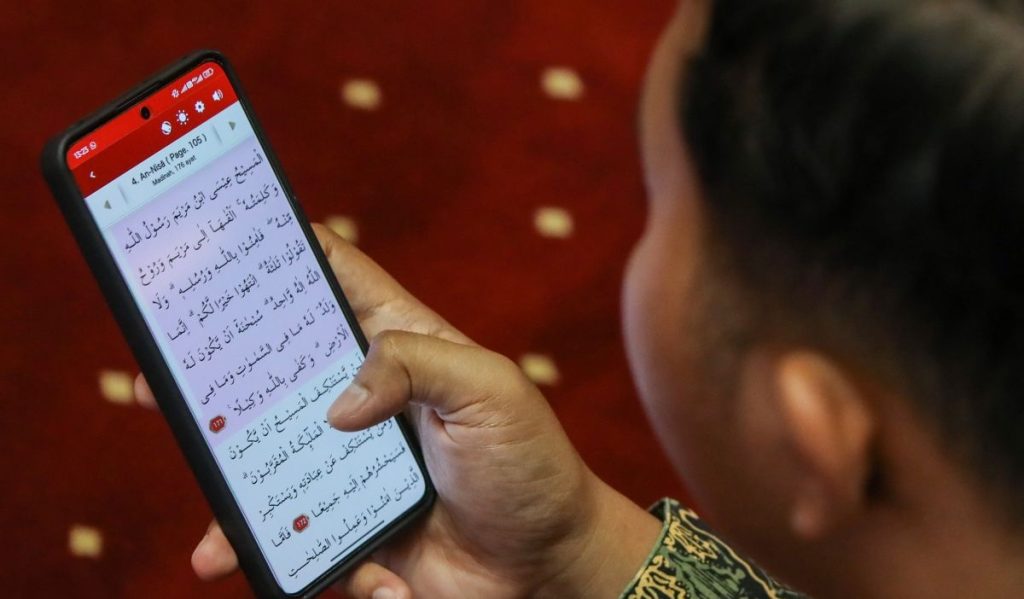 13:23
4. An-Nisā ( Page. 105 )
Madinah, 176 ayat
الْمَسِيْحُ عِيْسَى ابْنُ مَرْيَمَ رَسُوْلُ اللّٰهِ
وَكَلِمَتُهٗ ۚ اَلْقٰىهَآ اِلٰى مَرْيَمَ وَرُوْحٌ
مِّنْهُ ۖ فَاٰمِنُوْا بِاللّٰهِ وَرُسُلِهٖ ۗ وَلَا
تَقُوْلُوْا ثَلٰثَةٌ ۗ اِنْتَهُوْا خَيْرًا لَّكُمْ ۗ اِنَّمَا
اللّٰهُ اِلٰهٌ وَّاحِدٌ ۗ سُبْحٰنَهٗٓ اَنْ يَّكُوْنَ لَهٗ
وَلَدٌ ۘ لَهٗ مَا فِى السَّمٰوٰتِ وَمَا فِى
الْاَرْضِ ۗ وَكَفٰى بِاللّٰهِ وَكِيْلًا ١٧١
يَّسْتَنْكِفَ الْمَسِيْحُ اَنْ يَّكُوْنَ
الْمَلٰۤىِٕكَةُ الْمُقَرَّبُوْنَ ۗ
وَمَنْ يَّسْتَنْكِفْ عَنْ عِبَادَتِهٖ وَيَسْتَكْبِرْ
فَسَيَحْشُرُهُمْ اِلَيْهِ جَمِيْعًا ١٧٢ فَاَمَّا
الَّذِيْنَ اٰمَنُوْا وَعَمِلُوا الصّٰلِحٰتِ